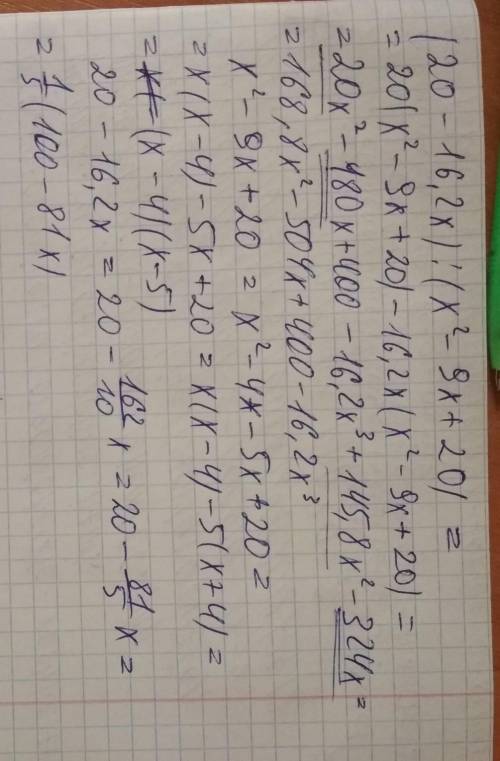 (20 - 16,2x) : (x² - 9x + 20) =
= 20(x² - 9x + 20) - 16,2x(x² - 9x + 20) =
= 20x² - 480x + 400 - 16,2x³ + 145,8x² - 324x =
= 168,8x² - 504x + 400 - 16,2x³
x² - 9x + 20 = x² - 4x - 5x + 20 =
= x(x - 4) - 5x + 20 = x(x - 4) - 5(x + 4) =
= (x - 4)(x - 5)
20 - 16,2x = 20 - 162/10 x = 20 - 81/5 x =
= 1/5 (100 - 81x)